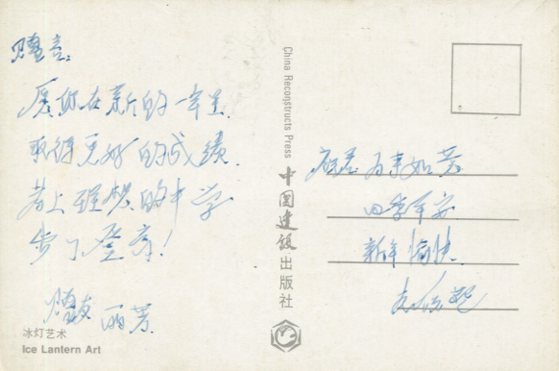 赠言:
愿你在新的一年里
取得更好的成绩
考上理想的中学
步步登高!
赠友 丽芳
冰灯艺术
Ice Lantern Art
China Reconstructs Press
中国建设出版社
万事如意
四季平安
新年愉快